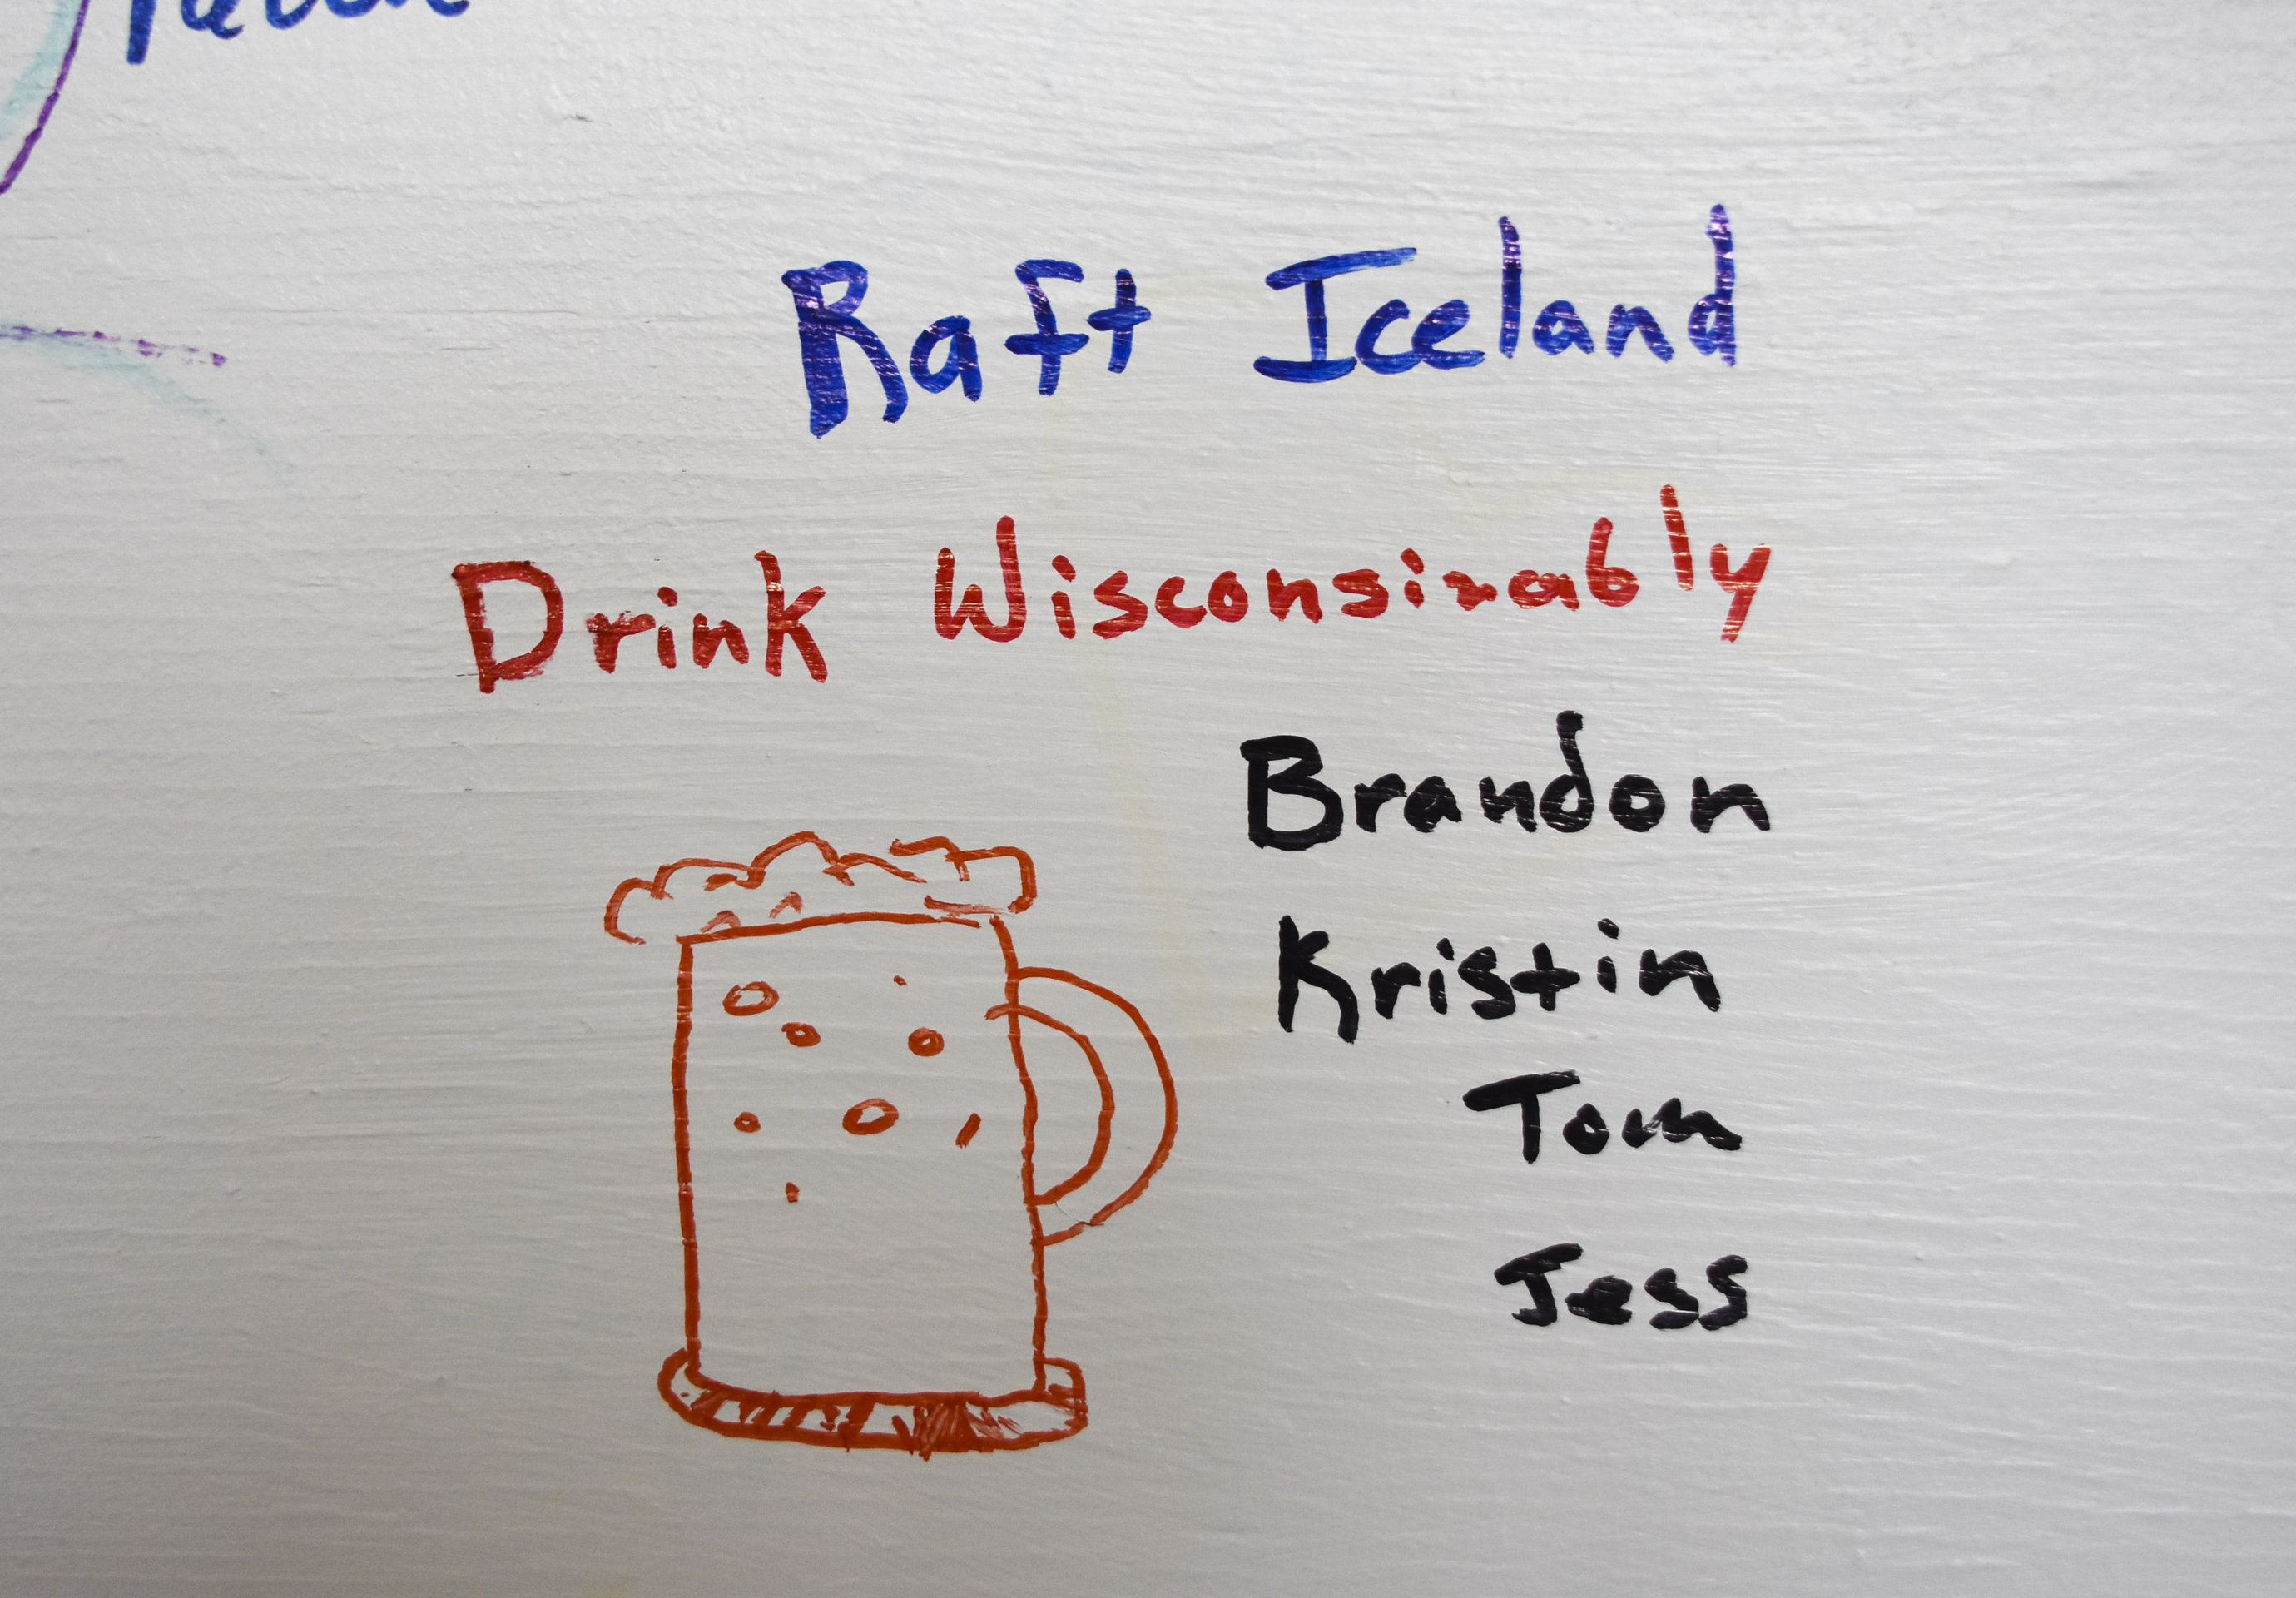 Raft Iceland
Drink Wisconsinably
Brandon
Kristin
Tom
Jess